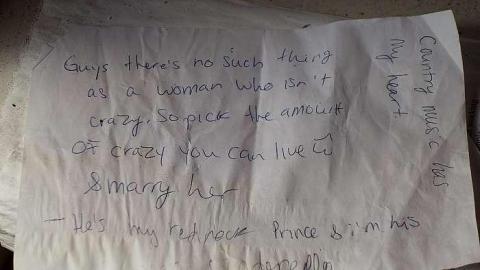 Guys there's no such thing
as a woman who isn't
crazy. So pick the amount
of crazy you can live w
& marry her
- He's my redneck Prince & i'm his
Country music has
my heart